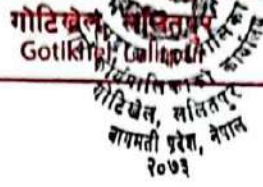 गोटिखेल, ललितपुर
Gotikhel, Lalitpur
कार्यपालिकाको कार्यालय
गोटिखेल, ललितपुर
बागमती प्रदेश, नेपाल
२०७३